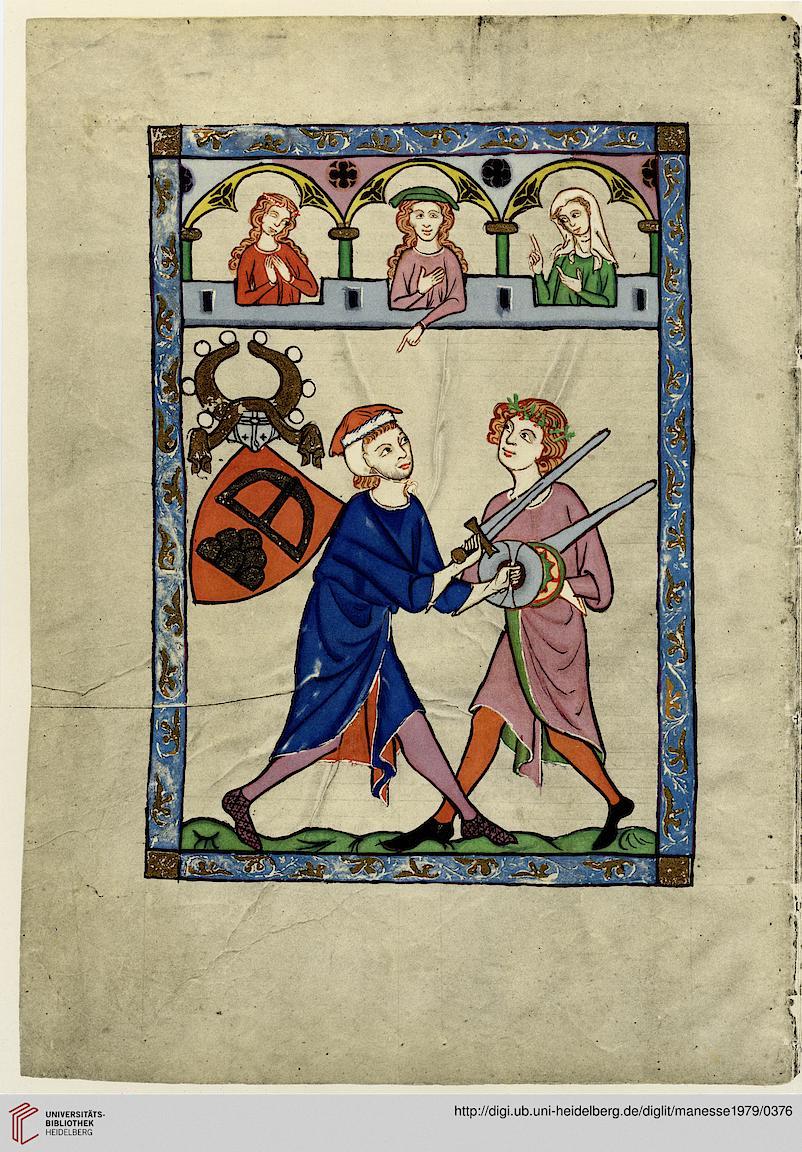 UNIVERSITÄTS-
BIBLIOTHEK
HEIDELBERG
http://digi.ub.uni-heidelberg.de/diglit/manesse1979/0376